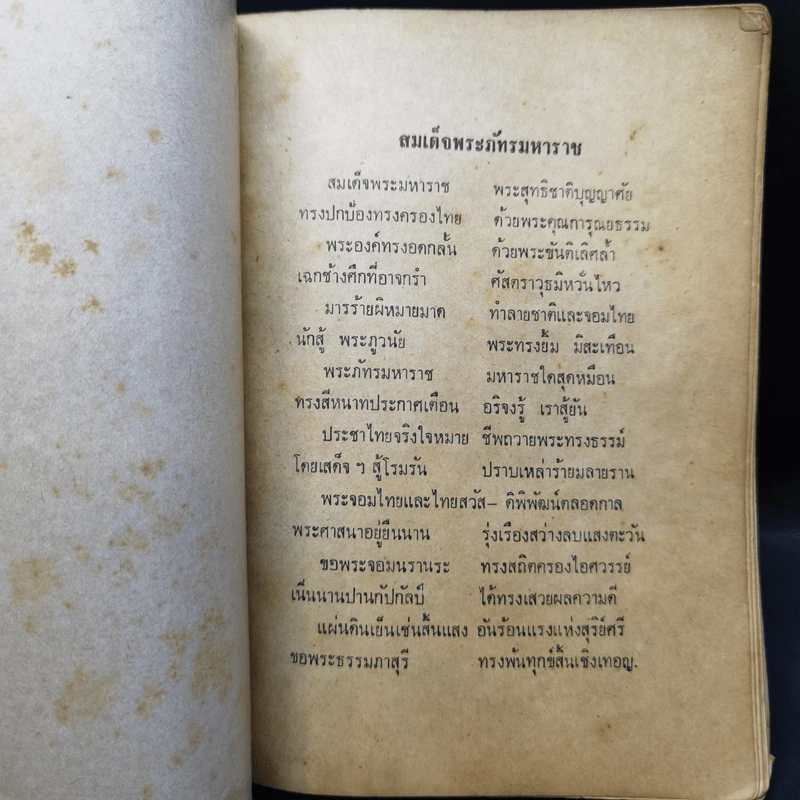 สมเด็จพระภัทรมหาราช
สมเด็จพระมหาราช พระสุทธิชาติบุญญาศัย
ทรงปกป้องทรงครองไทย ด้วยพระคุณการุณยธรรม
พระองค์ทรงอดกลั้น ด้วยพระขันติเลิศล้ำ
เฉกช้างศึกที่อาจกรำ ศัสตราวุธมิหวั่นไหว
มารร้ายผิหมายมาด ทำลายชาติและจอมไทย
นักสู้ พระภูวนัย พระทรงยิ้ม มิสะเทือน
พระภัทรมหาราช มหาราชใดสุดเหมือน
ทรงสีหนาทประกาศเตือน อริจงรู้ เราสู้ยัน
ประชาไทยจริงใจหมาย ชีพถวายพระทรงธรรม์
โดยเสด็จ ๆ สู้โรมรัน ปราบเหล่าร้ายมลายราน
พระจอมไทยและไทยสวัส– ดิพิพัฒน์ตลอดกาล
พระศาสนาอยู่ยืนนาน รุ่งเรืองสว่างลบแสงตะวัน
ขอพระจอมนรานระ ทรงสถิตครองไอศวรรย์
เนิ่นนานปานกัปกัลป์ ได้ทรงเสวยผลความดี
แผ่นดินเย็นเช่นสิ้นแสง อันร้อนแรงแห่งสุริย์ศรี
ขอพระธรรมภาสุรี ทรงพ้นทุกข์สิ้นเชิงเทอญ.